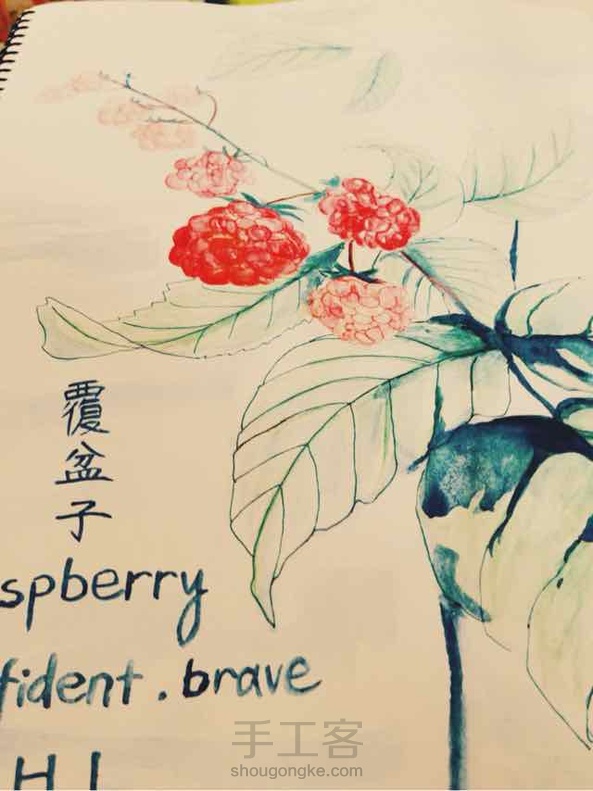 覆盆子
spberry
fident.brave
H I
手工客
shougongke.com